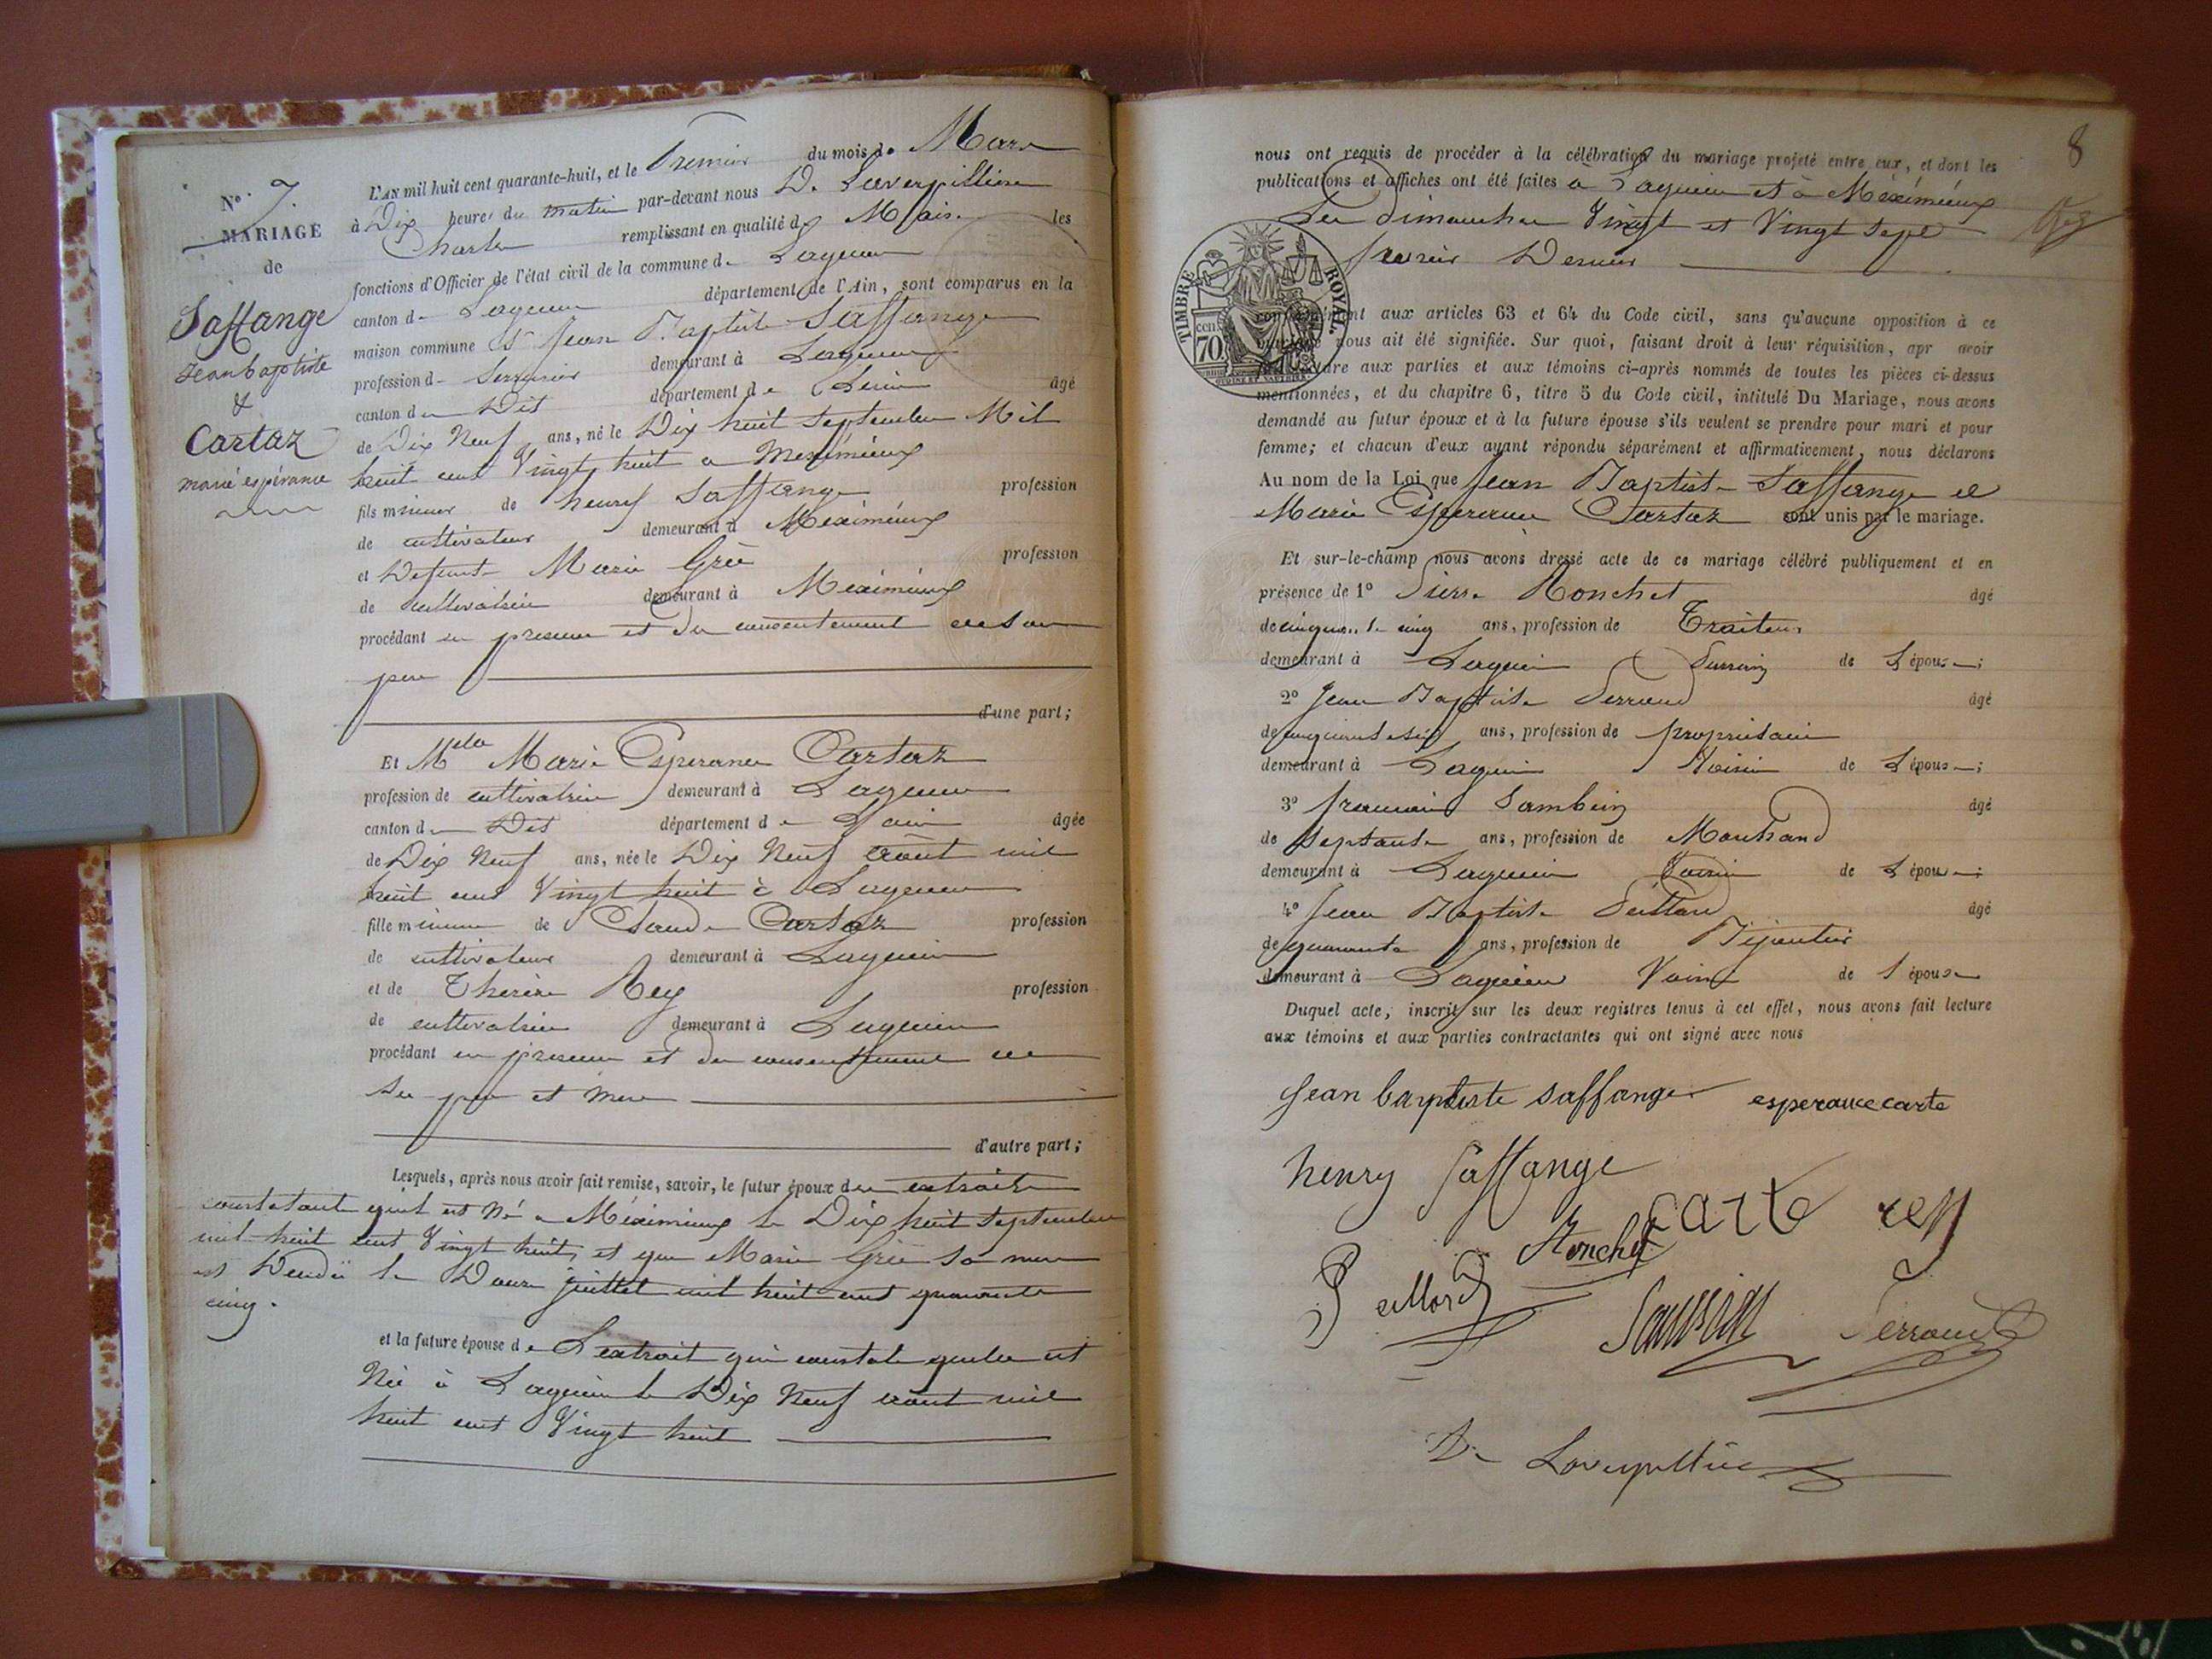 N.° 7.
MARIAGE
de
Saffange
Jean baptiste
&
Cartaz
marie espérance
L'AN mil huit cent quarante-huit, et le Premier du mois de Mars
à Dix heures du matin par-devant nous De Laverpillière
Charles remplissant en qualité de Maire les
fonctions d'Officier de l'état civil de la commune de Lagnieu
canton de Lagnieu département de l'Ain, sont comparus en la
maison commune Sr Jean Baptiste Saffange
profession de Serrurier demeurant à Lagnieu
canton du Dit département de L'ain âgé
de Dix Neuf ans, né le Dix huit Septembre Mil
huit cent Vingt huit a Meximieux
fils mineur de henry Saffange profession
de cultivateur demeurant à Meximieux
et Defunte Marie Grée profession
de cultivatrice demeurant à Meximieux
procédant en presence et du consentement de son
pere
d'une part;
Et Melle Marie Esperance Cartaz
profession de cultivatrice demeurant à Lagnieu
canton du Dit département de L'ain âgée
de Dix Neuf ans, née le Dix Neuf août mil
huit cent Vingt huit à Lagnieu
fille mineure de Claude Cartaz profession
de cultivateur demeurant à Lagnieu
et de Thérèse Rey profession
de cultivatrice demeurant à Lagnieu
procédant en presence et du consentement de
ses pere et mere
d'autre part;
Lesquels, après nous avoir fait remise, savoir, le futur époux des extraits
constatant qu'il est Né a Meximieux le Dix huit Septembre
mil huit cent Vingt huit, et que Marie Grée sa mere
est Decedée le Douze juillet mil huit cent quarante
cinq.
et la future épouse de L'extrait qui constate qu'elle est
Née à Lagnieu le Dix Neuf août mil
huit cent Vingt huit
8
nous ont requis de procéder à la célébration du mariage projeté entre eux, et dont les
publications et affiches ont été faites à Lagnieu et à Meximieux
Les dimanches Vingt et Vingt Sept
fevrier Dernier
TIMBRE ROYAL.
70 cen
conformément aux articles 63 et 64 du Code civil, sans qu'aucune opposition à ce
mariage nous ait été signifiée. Sur quoi, faisant droit à leur réquisition, apr avoir
lecture aux parties et aux témoins ci-après nommés de toutes les pièces ci-dessus
mentionnées, et du chapitre 6, titre 5 du Code civil, intitulé Du Mariage, nous avons
demandé au futur époux et à la future épouse s'ils veulent se prendre pour mari et pour
femme; et chacun d'eux ayant répondu séparément et affirmativement, nous déclarons
Au nom de la Loi que Jean Baptiste Saffange et
Marie Esperance Cartaz sont unis par le mariage.
Et sur-le-champ nous avons dressé acte de ce mariage célébré publiquement et en
présence de 1° Pierre Ronchet âgé
de cinquante cinq ans, profession de Traiteur
demeurant à Lagnieu de L'épouse;
2° Jean Baptiste Perraud âgé
de cinquante six ans, profession de propriétaire
demeurant à Lagnieu Voisin de L'épouse;
3° francois âgé
de Septante ans, profession de Marchand
demeurant à Lagnieu Voisin de L'épouse;
4° Jean Baptiste âgé
de quarante ans, profession de Bijoutier
demeurant à Lagnieu Voisin de l'épouse
Duquel acte, inscrit sur les deux registres tenus à cet effet, nous avons fait lecture
aux témoins et aux parties contractantes qui ont signé avec nous
Jean baptiste saffange esperance carta
henry Saffange
carta rey
Ronchet
Perraud
De Laverpillière